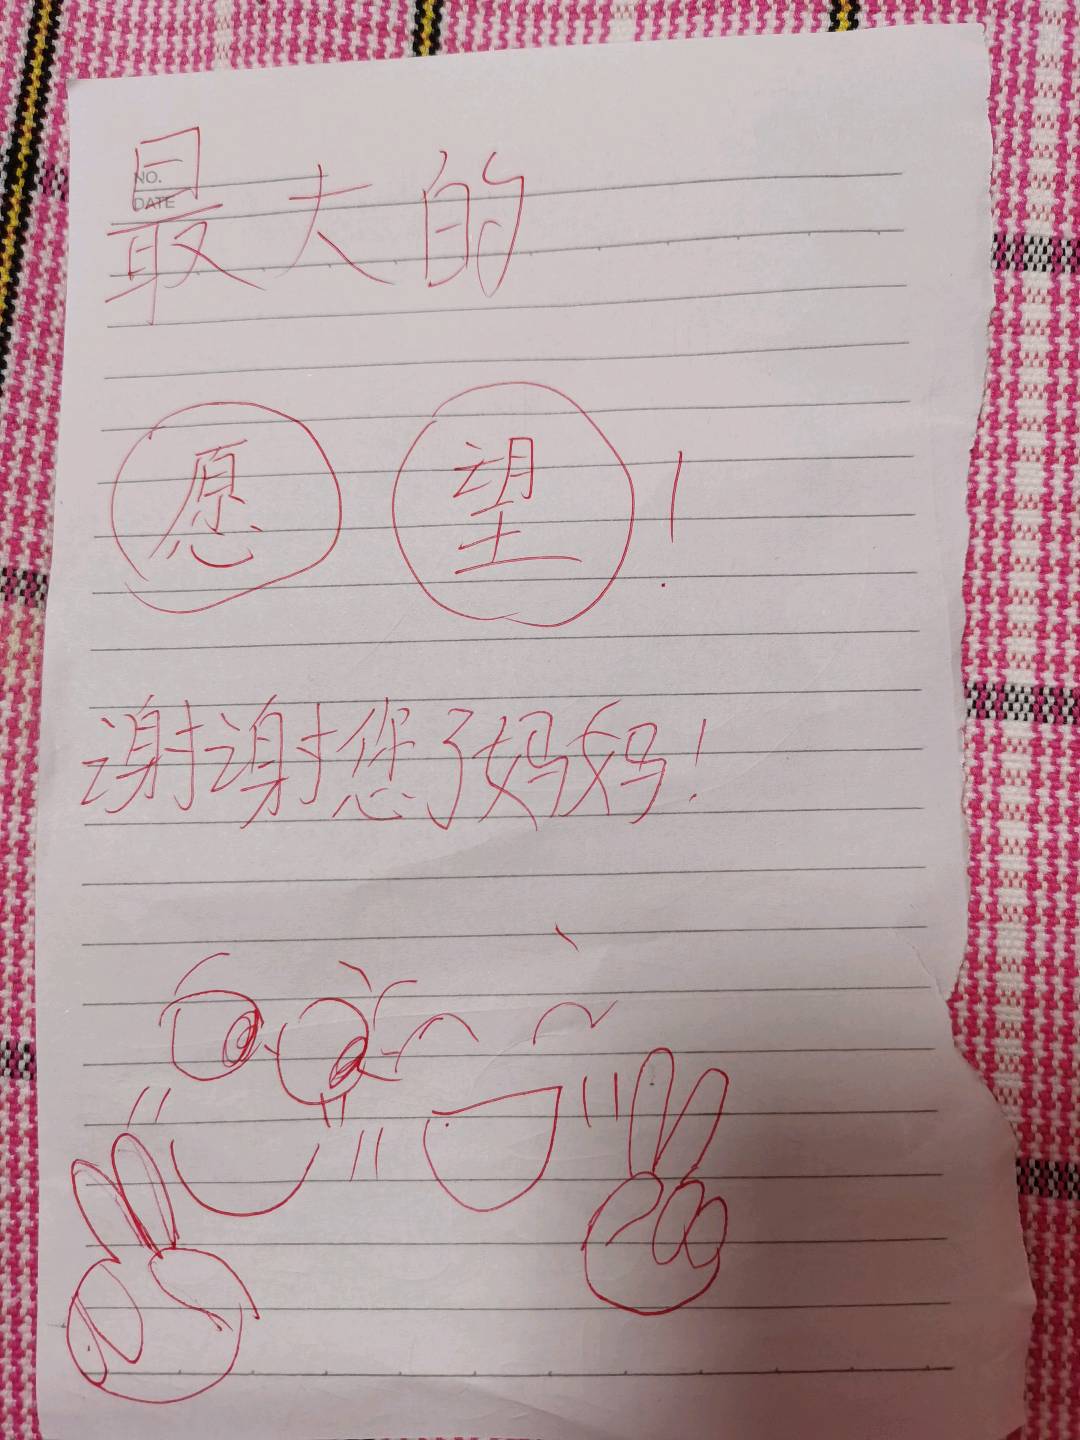 NO.
DATE
最大的
愿望!
谢谢您了妈妈!